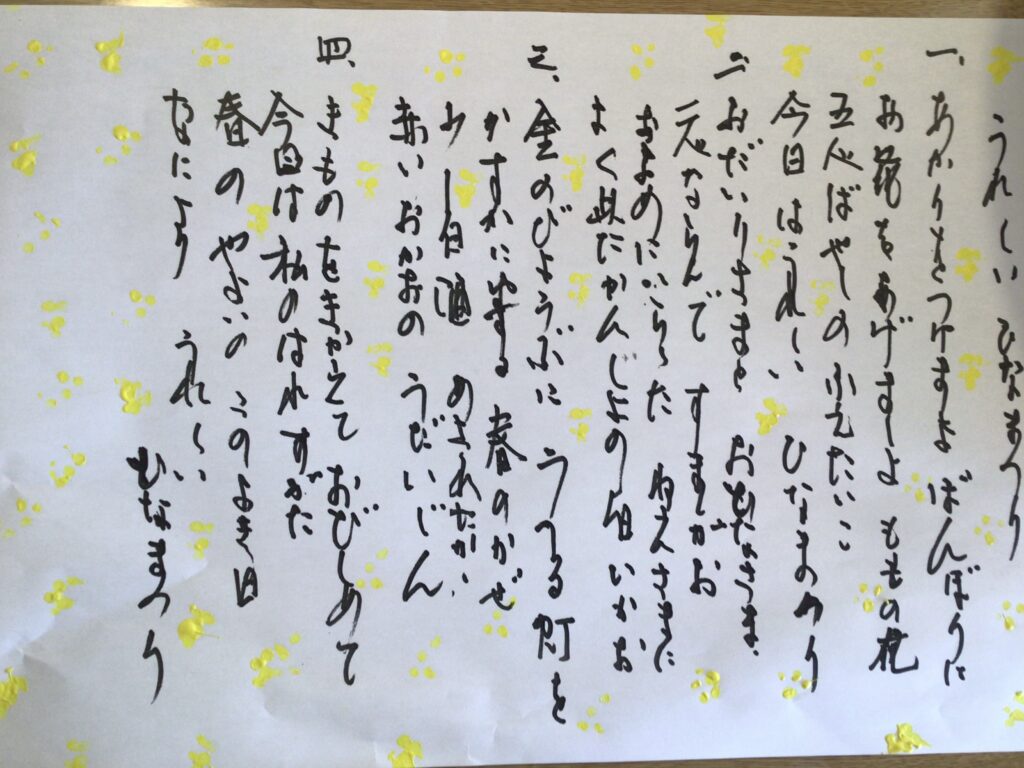 うれしい ひなまつり
一、あかりをつけましょ ぼんぼりに
お花をあげましょ ももの花
五人ばやしの ふえたいこ
今日はうれしい ひなまつり
二、おだいりさまと おひなさま
二人ならんで すましがお
およめにいらした ねえさまに
よくにたかんじょの 白いかお
三、金のびょうぶに うつる灯を
かすかにゆする 春のかぜ
少し白酒 めされたか
赤いおかおの うだいじん
四、きものをきかえて おびしめて
今日は私のはれすがた
春のやよいの このよき日
なにより うれしい ひなまつり